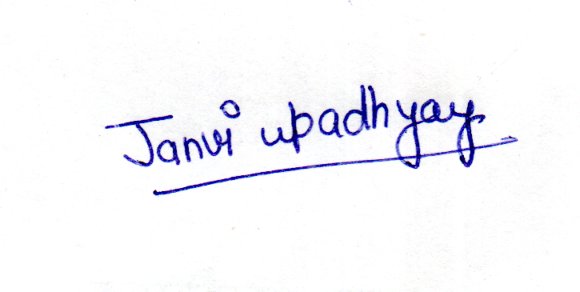 Janvi upadhyay